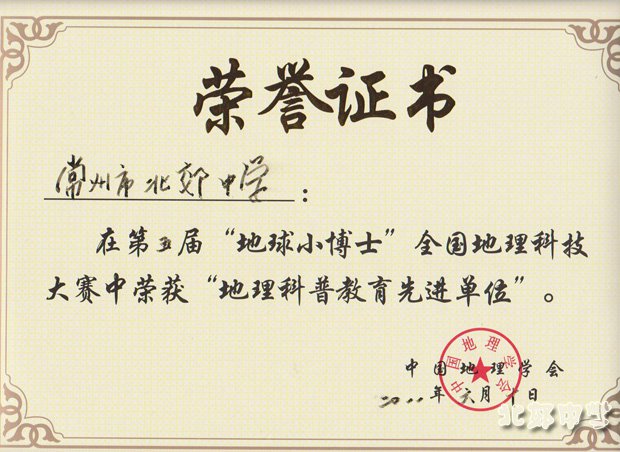 荣誉证书
常州市北郊中学：
在第五届“地球小博士”全国地理科技
大赛中荣获“地理科普教育先进单位”。
中国地理学会
中国地理学会
年六月十日
北郊中学